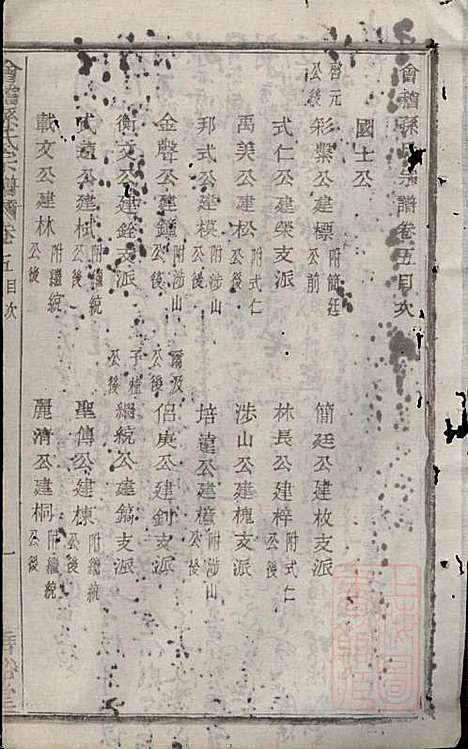 會稽孫氏宗譜卷五目次
國士公
啓元公後 彩繫公建標 附簡廷公前 簡廷公建枚支派
式仁公建榮支派 林長公建梓 附式仁公後
禹美公建松 附式仁公後 涉山公建槐支派
邦式公建模 附涉山公後 培遠公建檍 附涉山公後
金聲公建鐘 附涉山公後 爾汲公後 侶庚公建釗支派
衡文公建銓支派 子權公後 繼統公建鎬支派
武遠公建栻 附繼統公後 聖傳公建棟 附繼統公後
載文公建林 附繼統公後 麗清公建桐 附繼統公後
會稽孫氏宗譜 卷五目次 一